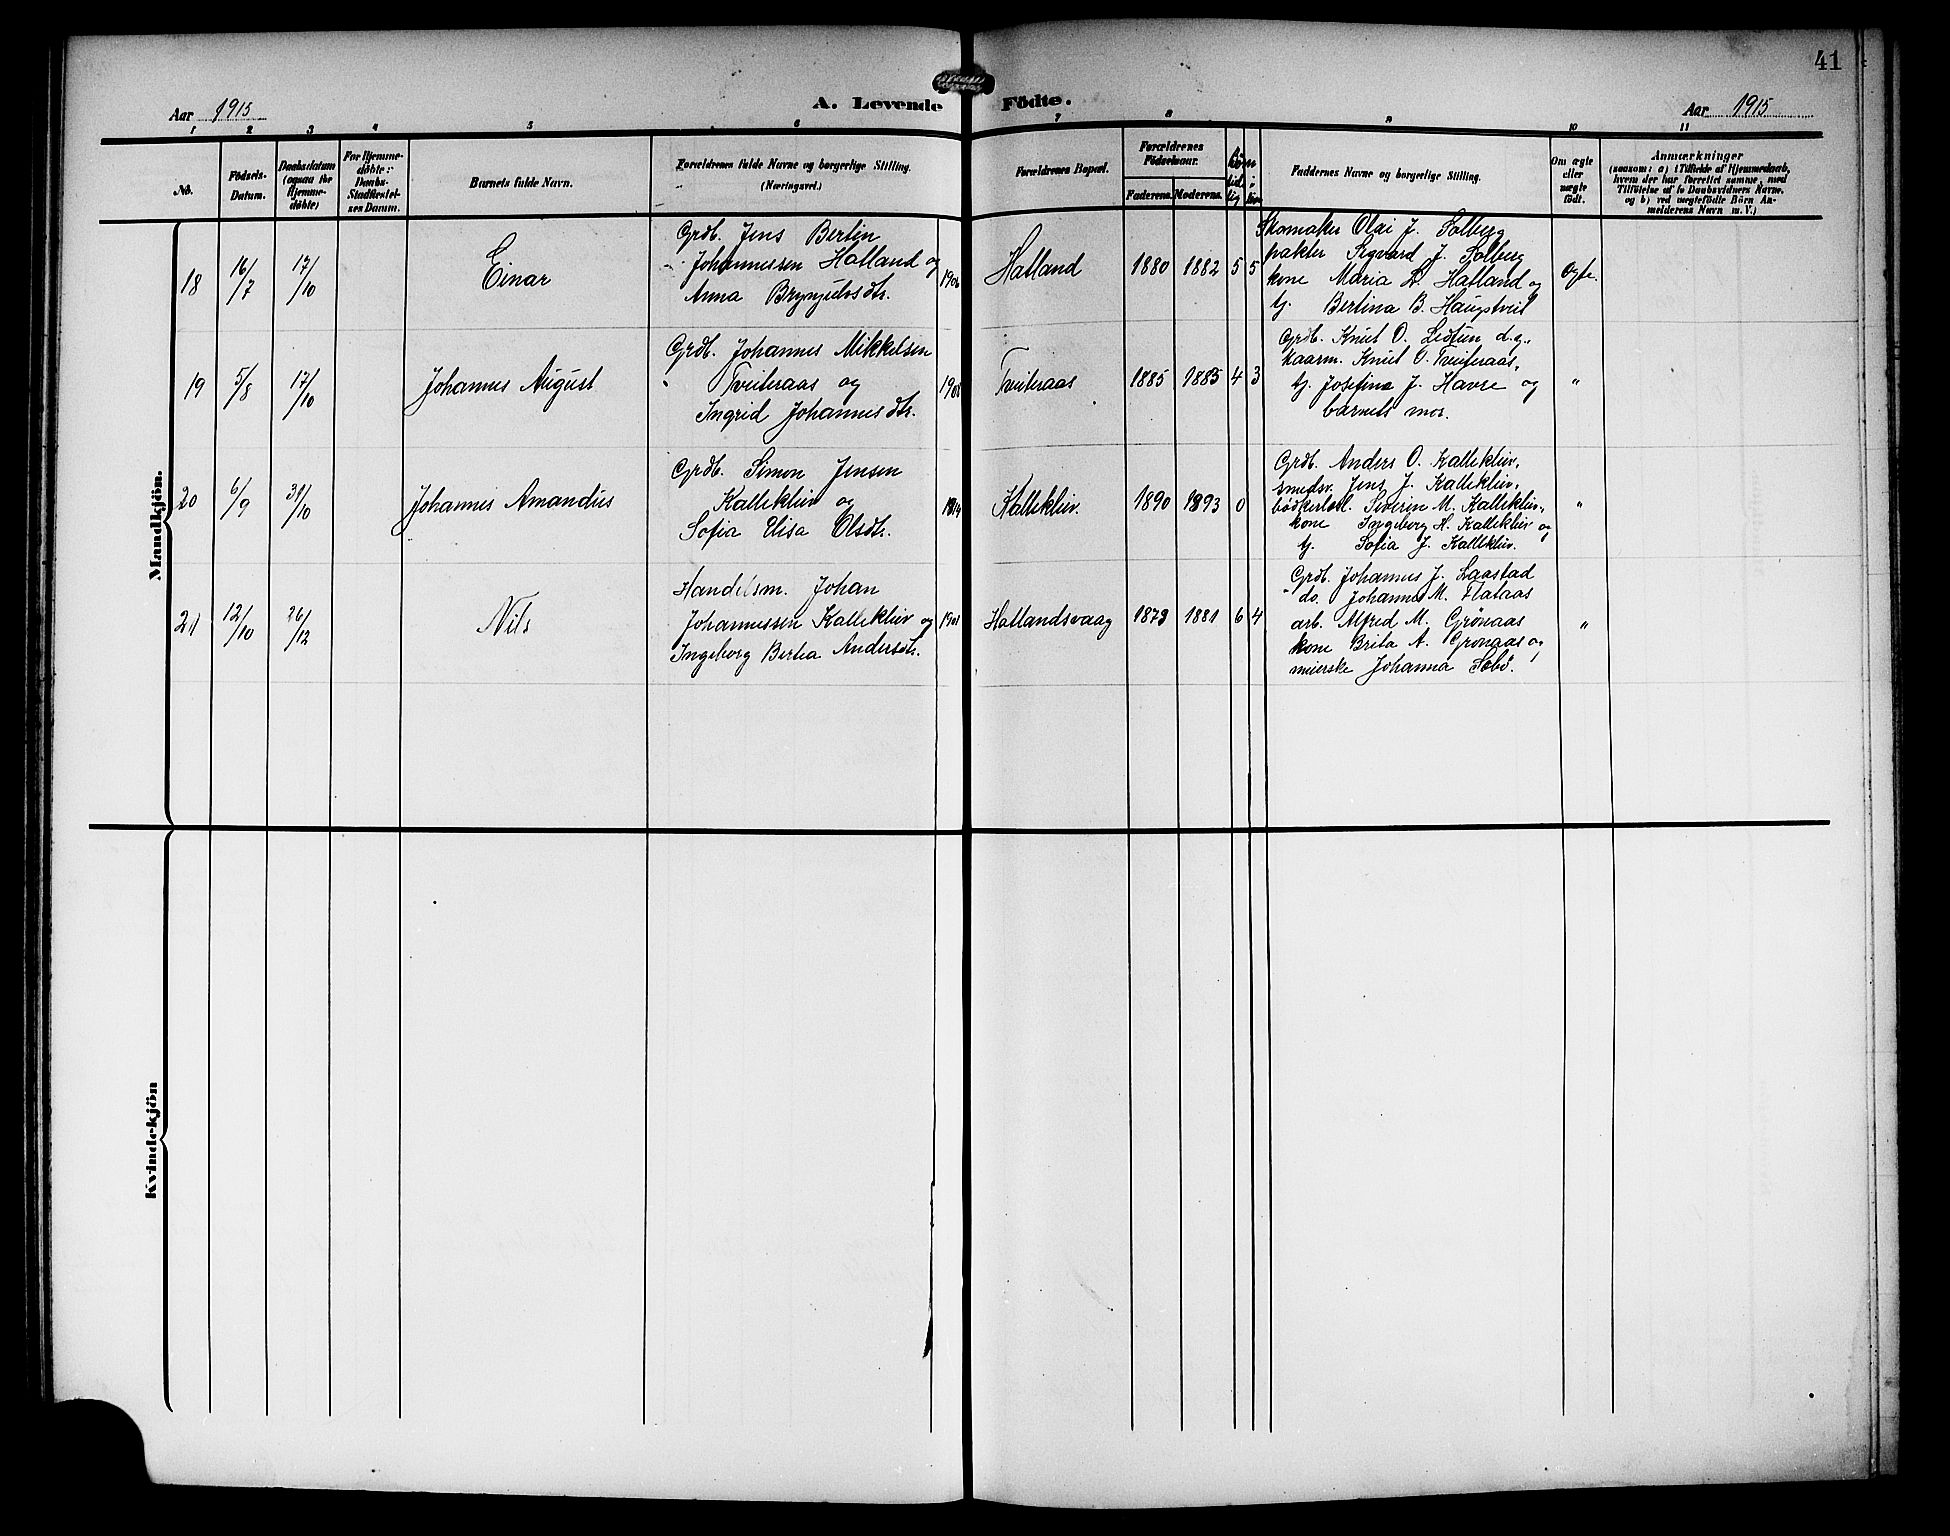 41
Aar 1915
A. Levende Fødte.
Aar 1915
1 2 3 4 5 6 7 8 9 10 11
No.
Fødsels-Datum.
Daabsdatum (ogsaa for Hjemme-døbte)
For Hjemme-døbte: Daabs-Stadfæstel-ses Datum.
Barnets fulde Navn.
Forældrenes fulde Navne og borgerlige Stilling. (Næringsvei.)
Forældrenes Bopæl.
Forældrenes Fødselsaar.
Faderens. Moderens.
Faddernes Navne og borgerlige Stilling.
Om ægte eller uægte født.
Anmærkninger
(saasom: a) i Tilfælde af Hjemmedaab, hvem der har forrettet samme, med Tilføielse af to Daabsvidners Navne, og b) ved uægtefødte Børn An-melderens Navn m. V.)
Mandkjön.
18 16/7 17/10 Einar
Grdb. Jens Bertin
Johannessen Hatland og
Anna Brynjulvsdtr.
1906 Hatland 1880 1882 5 5
Skomaker Olai J. Solberg
pakter Sigvard J. Solberg
kone Maria L. Hatland og
tj. Bertina B. Haugstveit
ægte.
19 5/8 17/10 Johannes August
Grdb. Johannes Mikkelsen
Tveiteraas og
Ingrid Johannesdtr.
1908 Tveiteraas 1885 1885 4 3
Grdb. Knut O. Lidtun d.y.,
kaarm. Knut O. Tveiteraas,
tj. Josefina J. Havre og
barnets mor.
"
20 6/9 31/10 Johannes Amandus
Grdb. Simon Jensen
Kallekleiv og
Sofia Elisa Olsdtr.
1914 Kallekleiv. 1890 1893 0
Grdb. Anders O. Kallekleiv,
smedsv. Jens J. Kallekleiv,
bödkerlærl. Severin M. Kallekleiv,
kone Ingeborg H. Kallekleiv og
tj. Sofia J. Kallekleiv.
"
21 12/10 26/12 Nils
Handelsm. Johan
Johannessen Kallekleiv og
Ingeborg Bertea Andersdtr.
1901 Hatlandsvaag 1873 1881 6 4
Grdb. Johannes J. Laastad
do. Johannes M. Flataas
arb. Alfred M. Grönaas
kone Brita A. Grönaas og
meierske Johanna Sæbö.
"
Kvindekjön